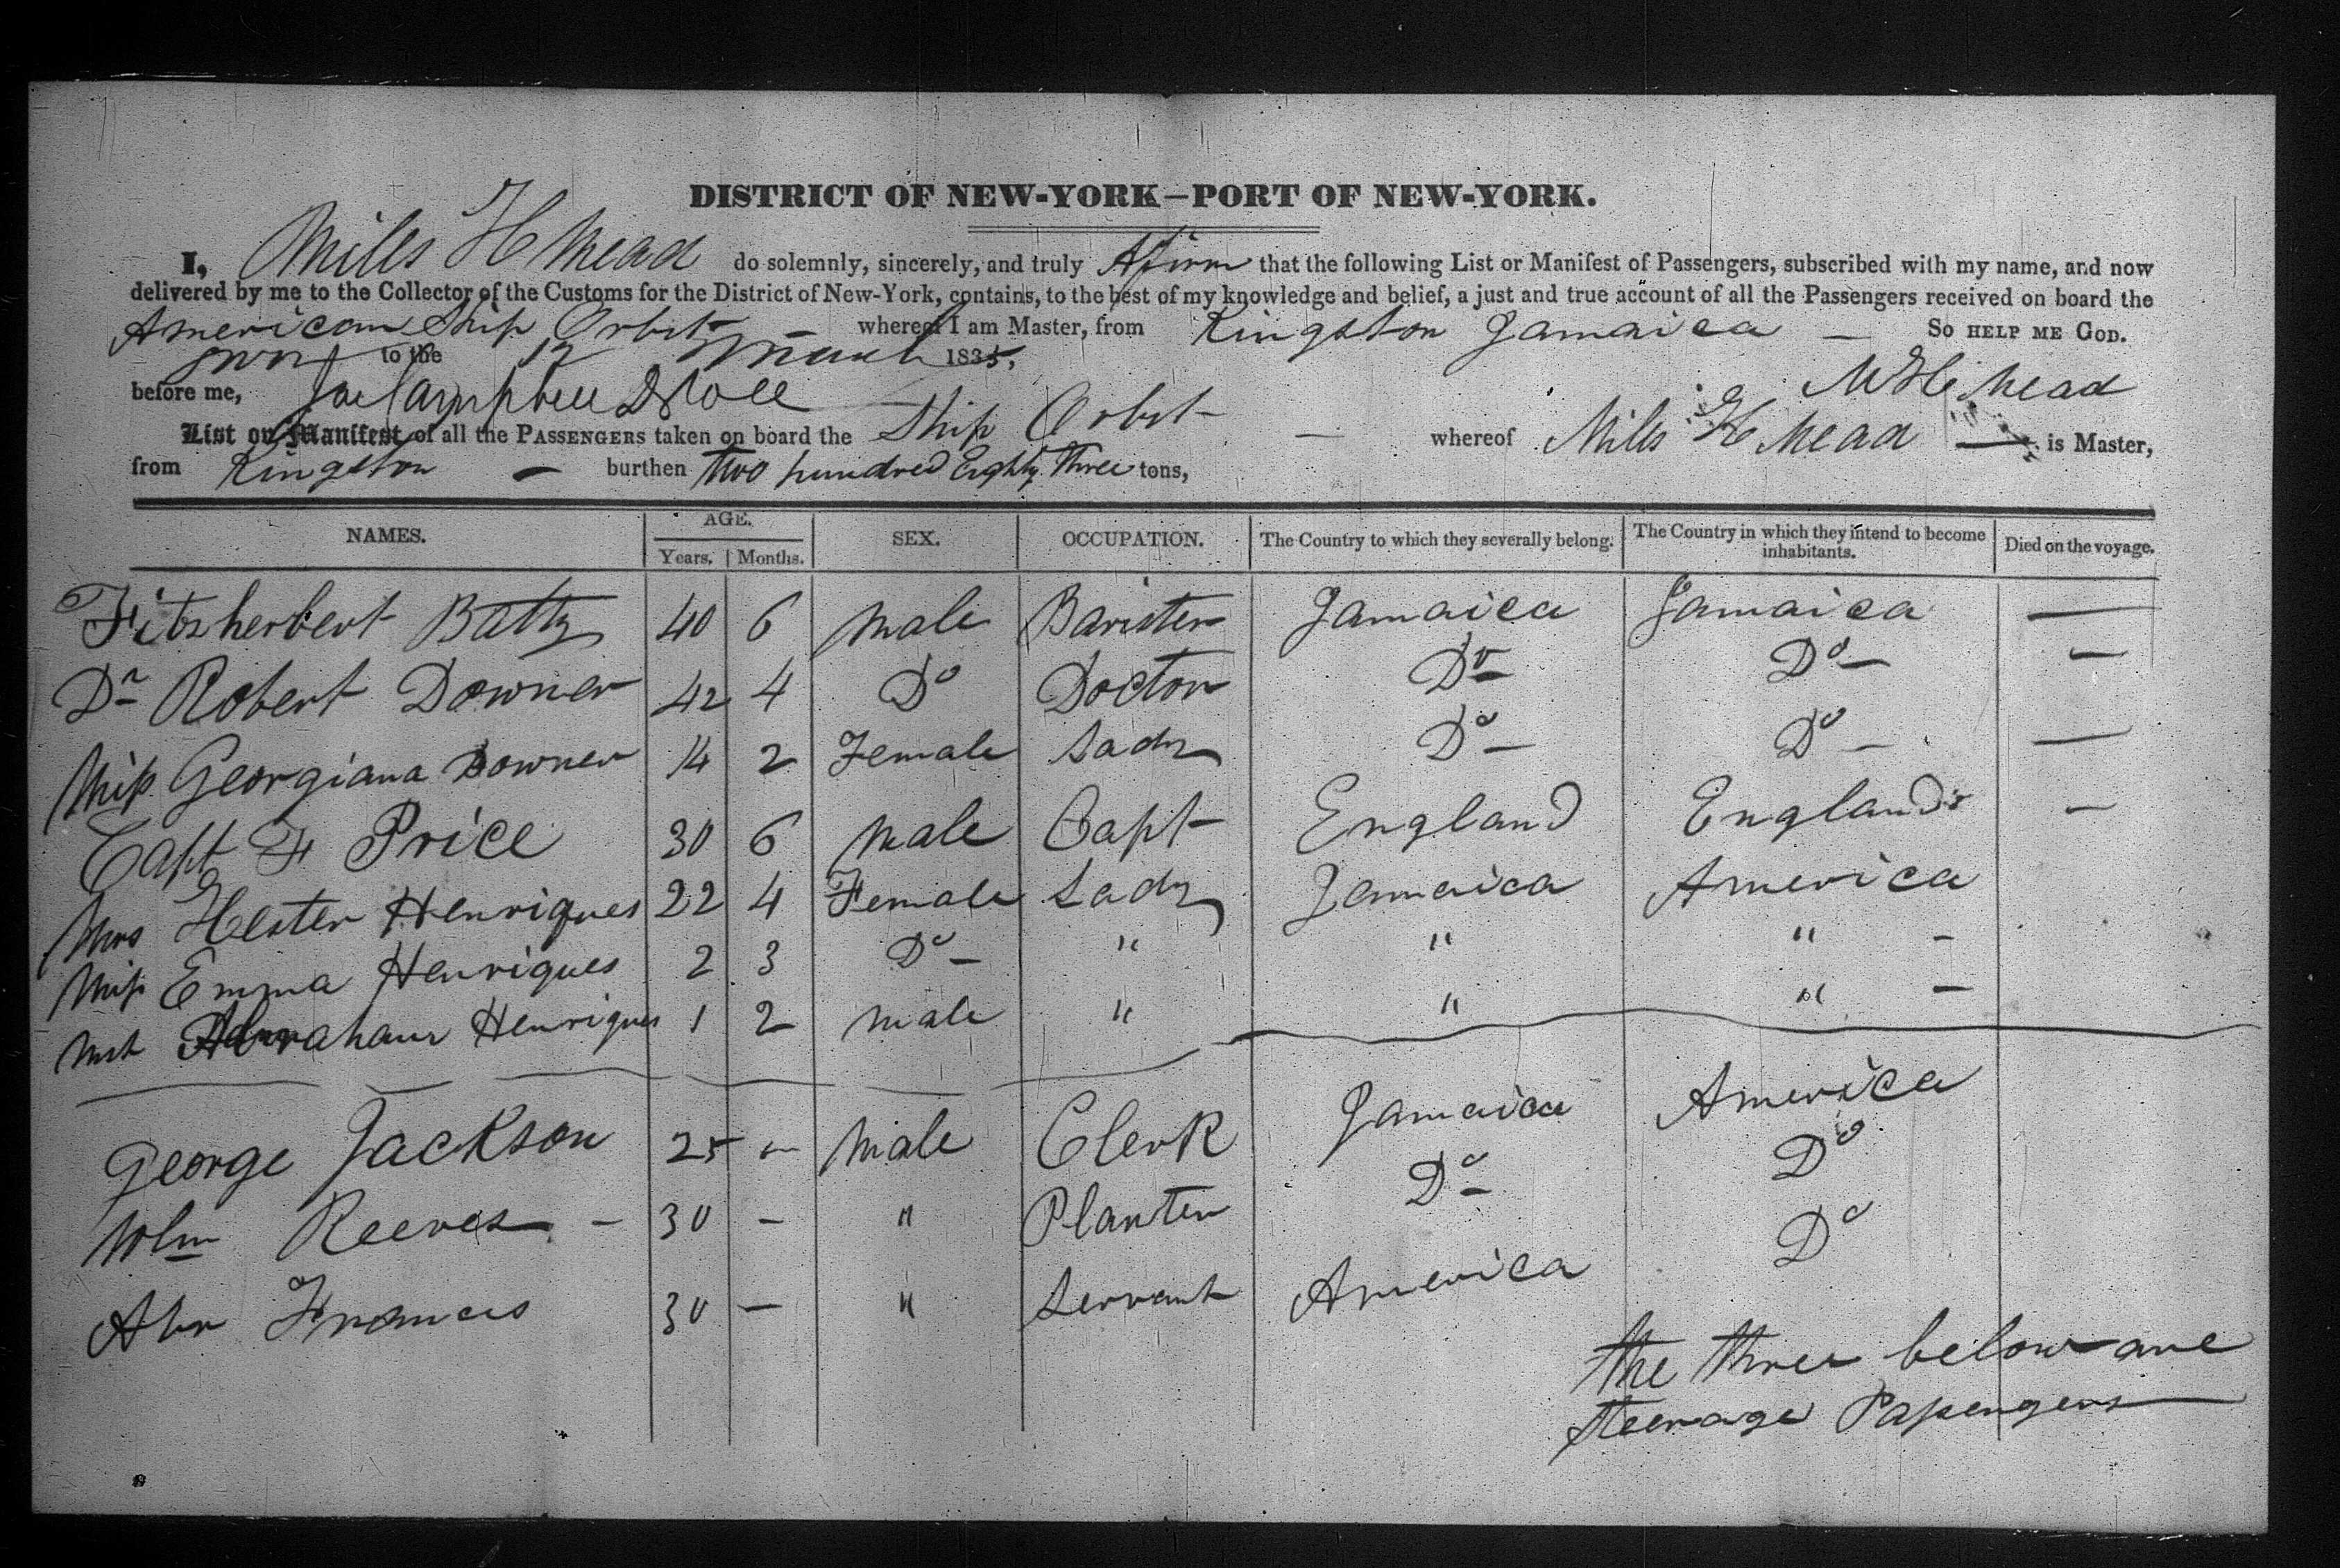 DISTRICT OF NEW-YORK—PORT OF NEW-YORK.
I, Miles H Mead do solemnly, sincerely, and truly Affirm that the following List or Manifest of Passengers, subscribed with my name, and now
delivered by me to the Collector of the Customs for the District of New-York, contains, to the best of my knowledge and belief, a just and true account of all the Passengers received on board the
American Ship Orbit — whereof I am Master, from Kingston Jamaica — So HELP ME GOD.
to the 12 March 1835,
M H Mead
before me,
List or Manifest of all the PASSENGERS taken on board the Ship Orbit — whereof Miles H Mead — is Master,
from Kingston — burthen Two hundred Eighty Three tons,
NAMES. AGE. SEX. OCCUPATION. The Country to which they severally belong. The Country in which they intend to become inhabitants. Died on the voyage.
Years. Months.
Fitsherbert Batty 40 6 Male Barister Jamaica Jamaica —
Dr Robert Downer 42 4 Do Doctor Do — Do — —
Miss Georgiana Downer 14 2 Female Lady Do — Do — —
Capt F Price 30 6 Male Capt England England —
Mrs Hester Henriques 22 4 Female Lady Jamaica America
Miss Emma Henriques 2 3 Do — " " " —
Mst Abrahaur Henriques 1 2 Male " " " —
George Jackson 25 — Male Clerk Jamaica America
Wlm Reeves — 30 — " Planter Do — Do
Abr Francis 30 — " Servant America Do
The Three below are
Steerage Passengers